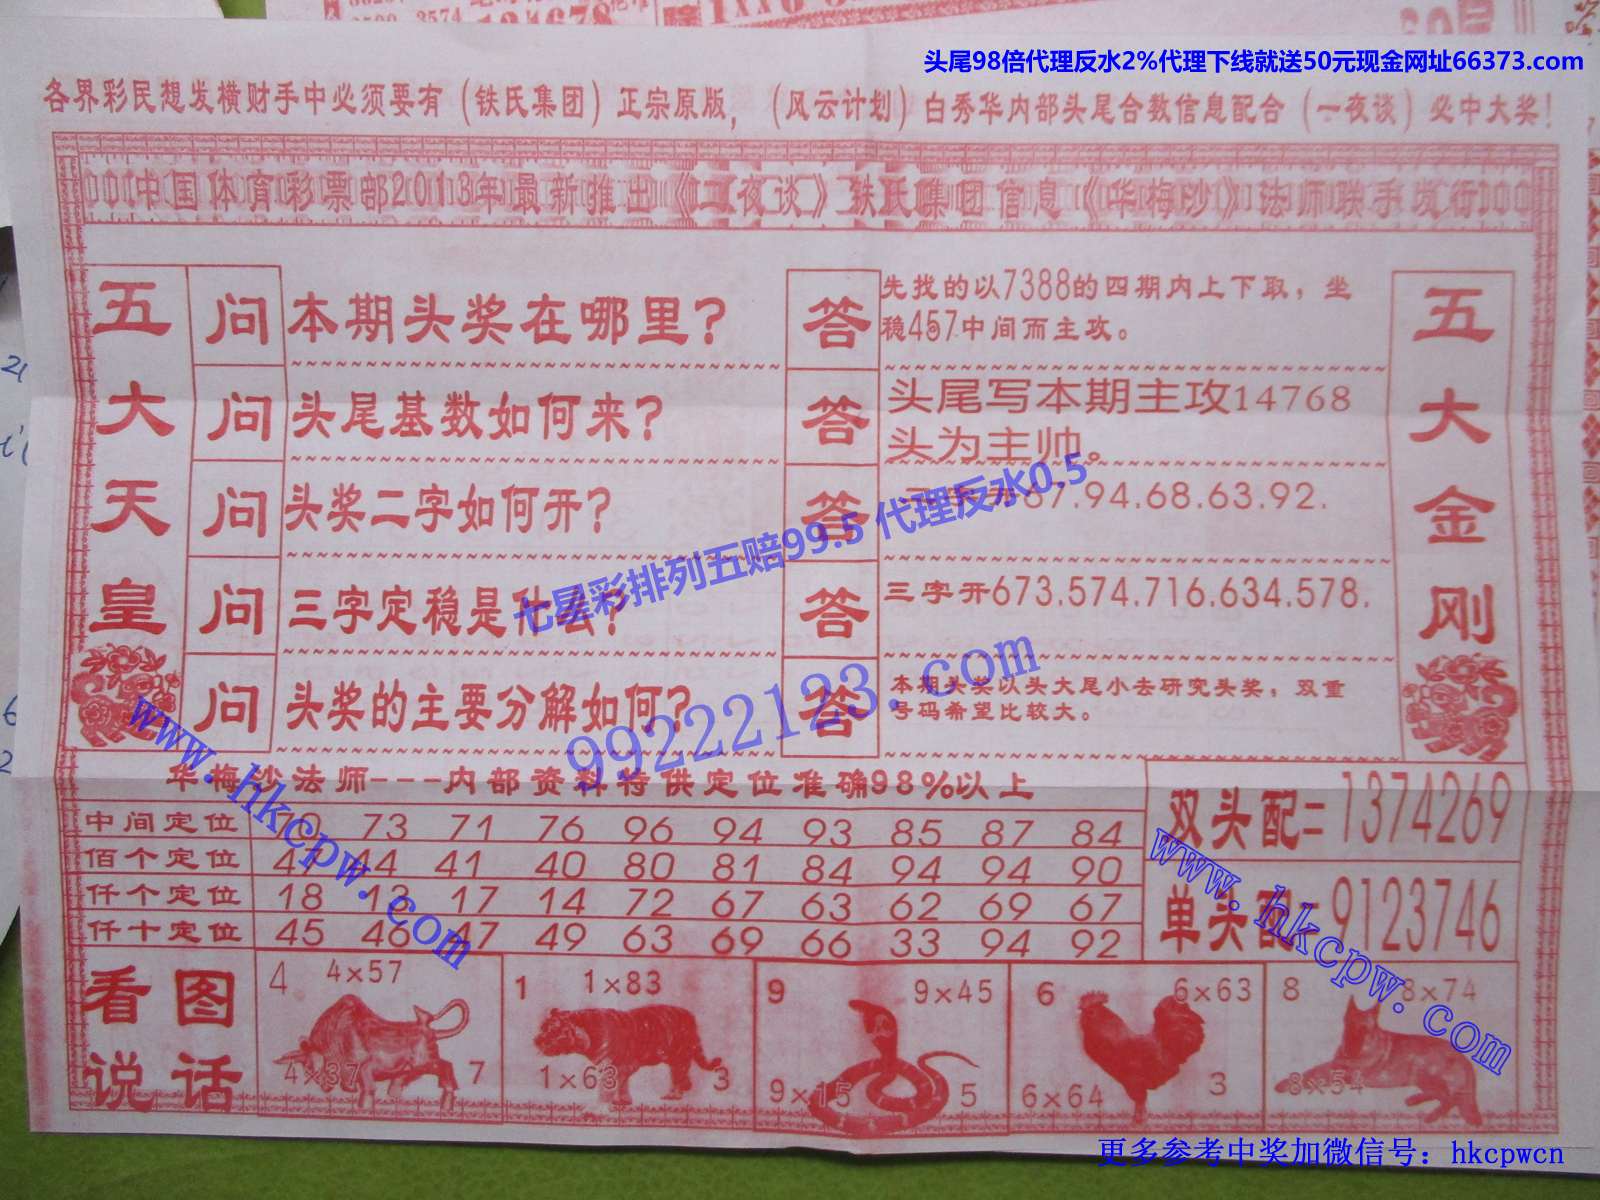 头尾98倍代理反水2%代理下线就送50元现金网址66373.com
各界彩民想发横财手中必须要有(铁氏集团)正宗原版,(风云计划)白秀华内部头尾合数信息配合(一夜谈)必中大奖!
中国体育彩票部2013年最新推出《一夜谈》铁氏集团信息《华梅沙》法师联手发行
五大天皇
问 本期头奖在哪里?
答 先找的以7388的四期内上下取,坐
稳457中间而主攻。
问 头尾基数如何来?
答 头尾写本期主攻14768
头为主帅。
问 头奖二字如何开?
答 67.94.68.63.92.
问 三字定稳是什么?
答 三字开673.574.716.634.578.
问 头奖的主要分解如何?
答 本期头奖以头大尾小去研究头奖,双重
号码希望比较大。
五大金刚
七星彩排列五赔99.5 代理反水0.5
99222123.com
www.hkcpw.com
华梅沙法师---内部资料特供定位准确98%以上
中间定位 70 73 71 76 96 94 93 85 87 84
佰个定位 47 44 41 40 80 81 84 94 94 90
仟个定位 18 13 17 14 72 67 63 62 69 67
仟十定位 45 46 47 49 63 69 66 33 94 92
双头配=1374269
单头配=9123746
www.hkcpw.com
看图
说话
4 4×57
4×37 7
1 1×83
1×63 3
9 9×45
9×15 5
6 6×63
6×64 3
8 8×74
8×54
更多参考中奖加微信号:hkcpwcn